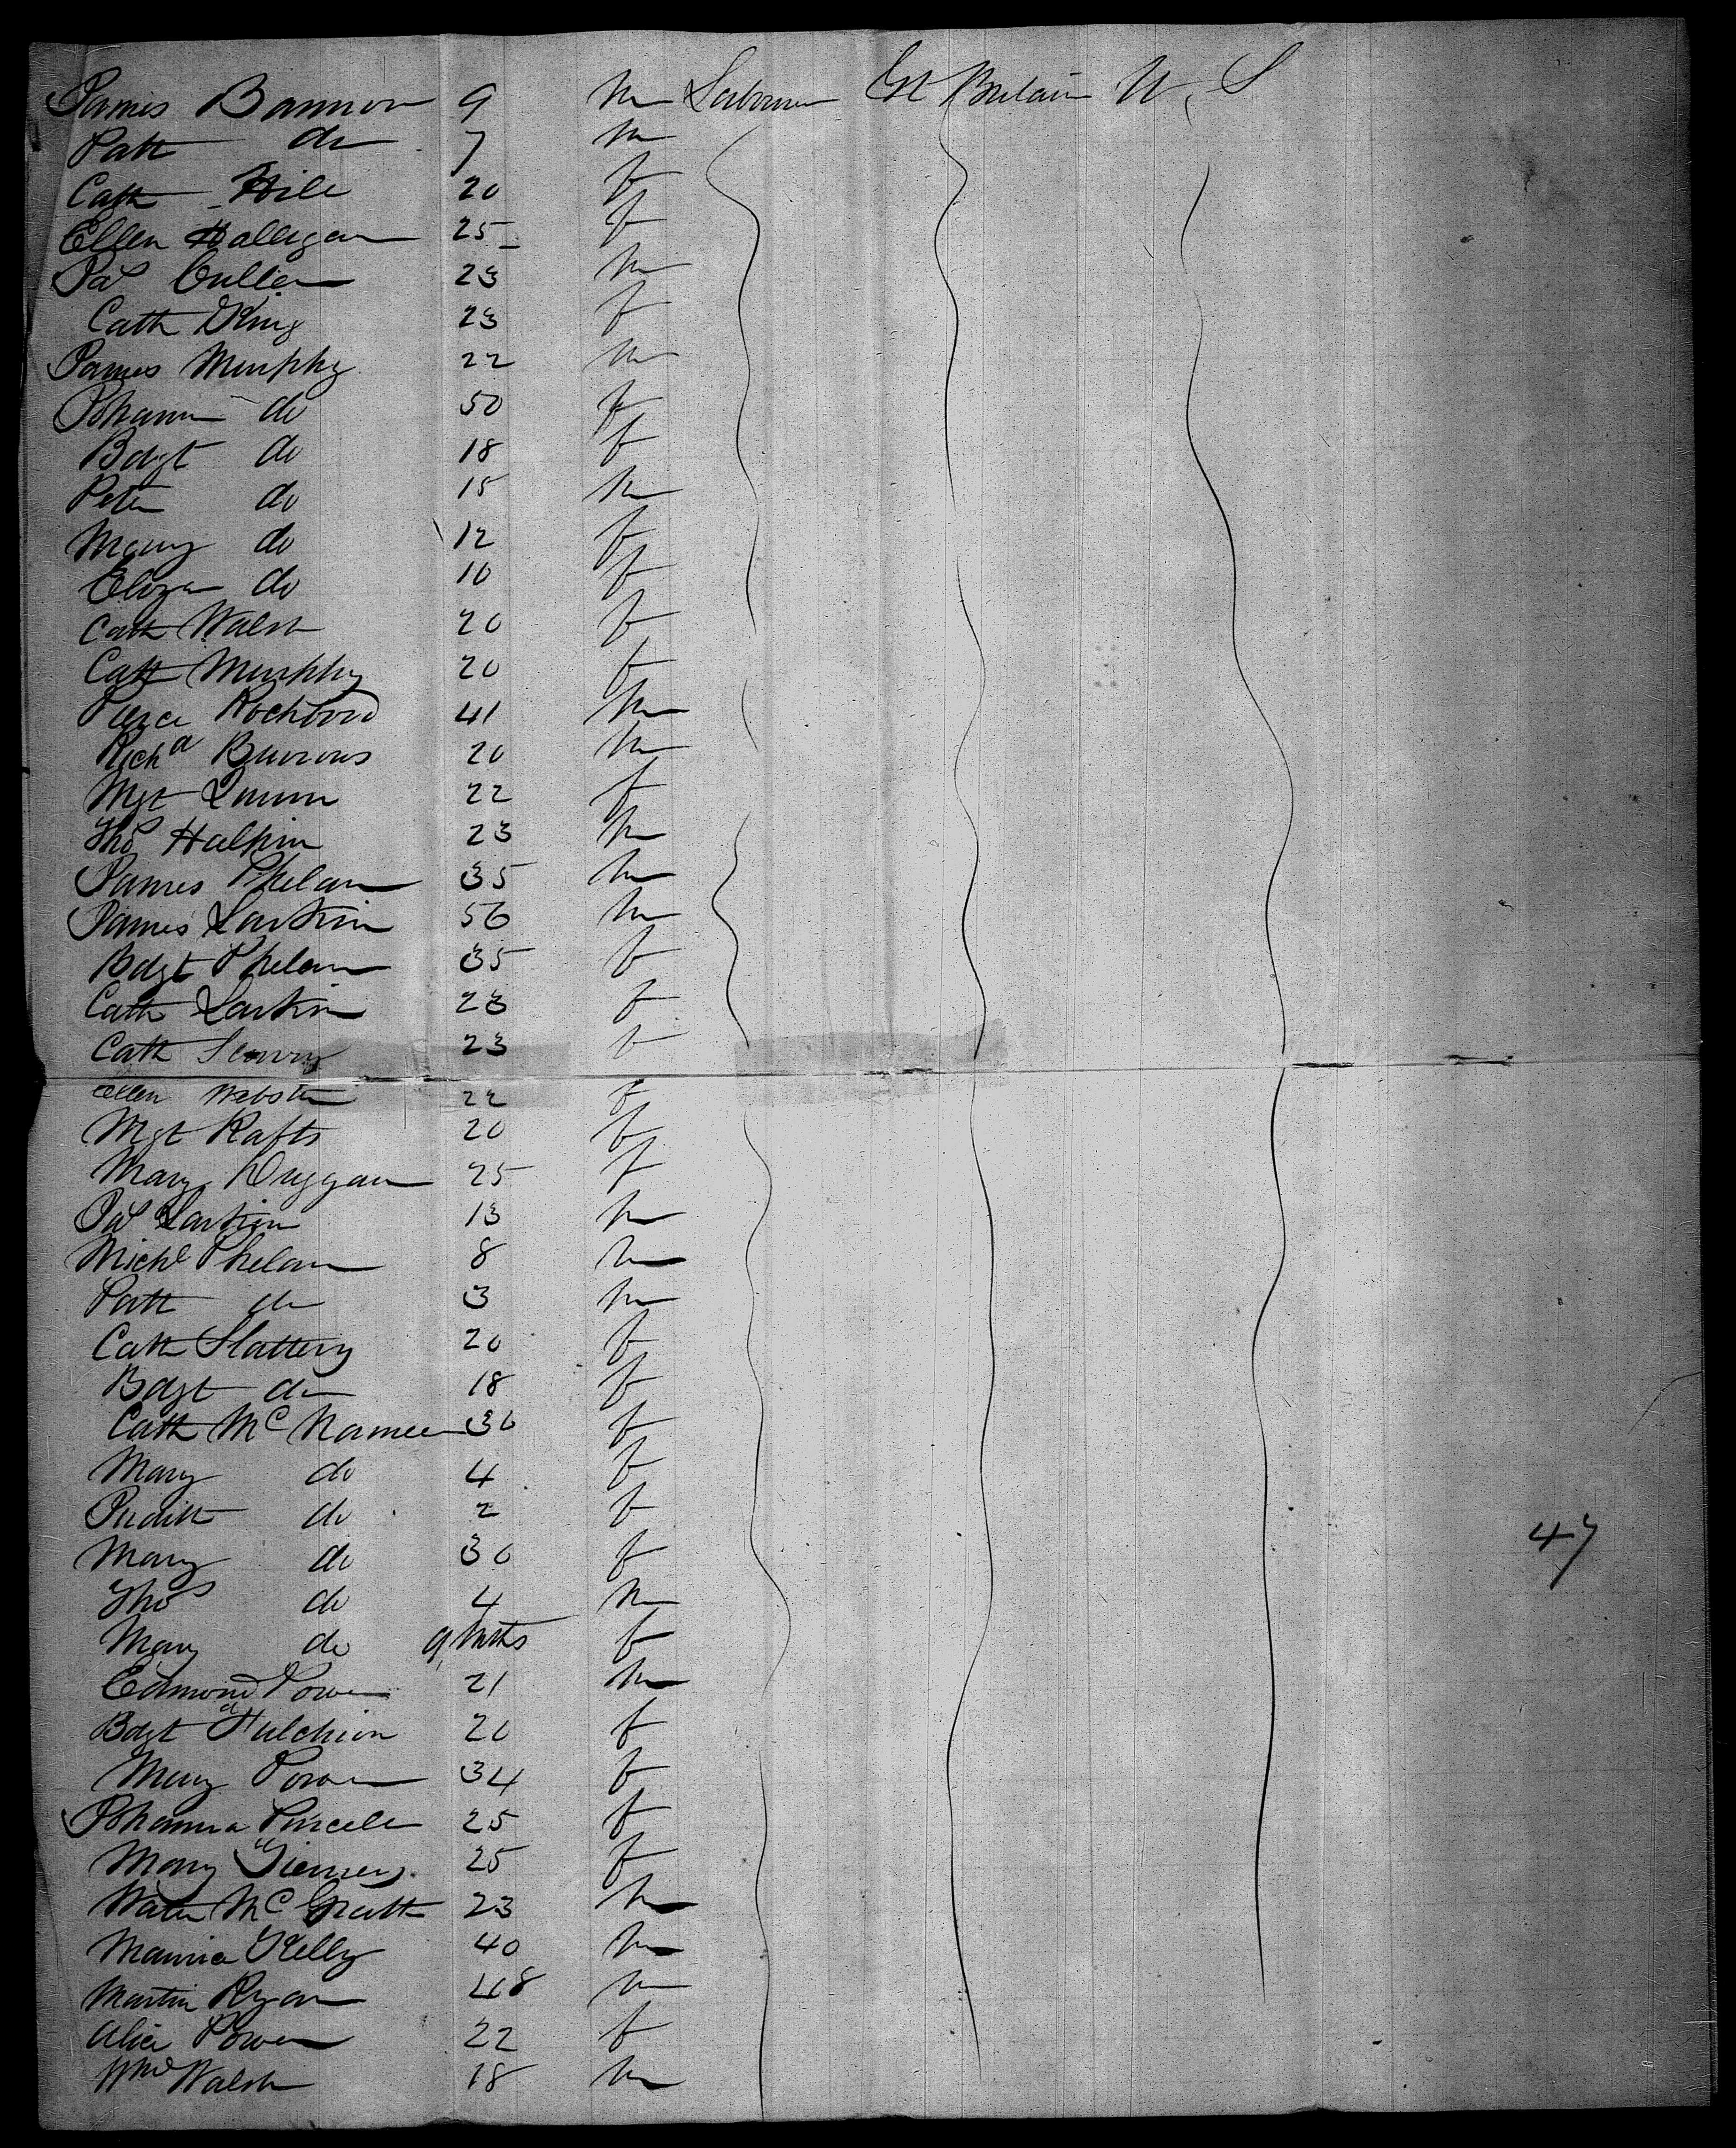 James Bannon 9 m Labourer Gt Britain U, S
Patt do 7 m
Cath Hill 20 f
Ellen Halligan 25 f
Pat Cullen 23 m
Cath King 23 f
James Murphy 22 m
Johanna do 50 f
Bdgt do 18 f
Peter do 15 m
Mary do 12 f
Eliza do 10 f
Cath Walsh 20 f
Cath Murphy 20 f
Pierce Rochford 41 m
Richd Burrows 20 m
Mgt 22 f
Thos Halpin 23 m
James Phelan 35 m
James Larkin 56 m
Bdgt Phelan 35 f
Cath Larkin 23 f
Cath 23 f
Ellen Webster 22 f
Mgt Rafts 20 f
Mary Duggan 25 f
Pat Larkin 13 m
Michl Phelan 8 m
Patt do 3 m
Cath Slattery 20 f
Bdgt do 18 f
Cath McNamee 30 f
Mary do 4 f
Judith do 2 f
Mary do 30 f
47
Thos do 4 m
Mary do 9 Mnts f
Edmond Power 21 m
Bdgt 20 f
Mary Power 34 f
Johanna Purcell 25 f
Mary Tierney 25 f
Walter McGrath 23 m
Maurice Kelly 40 m
Martin Ryan 48 m
Alice Power 22 f
Wm Walsh 18 m